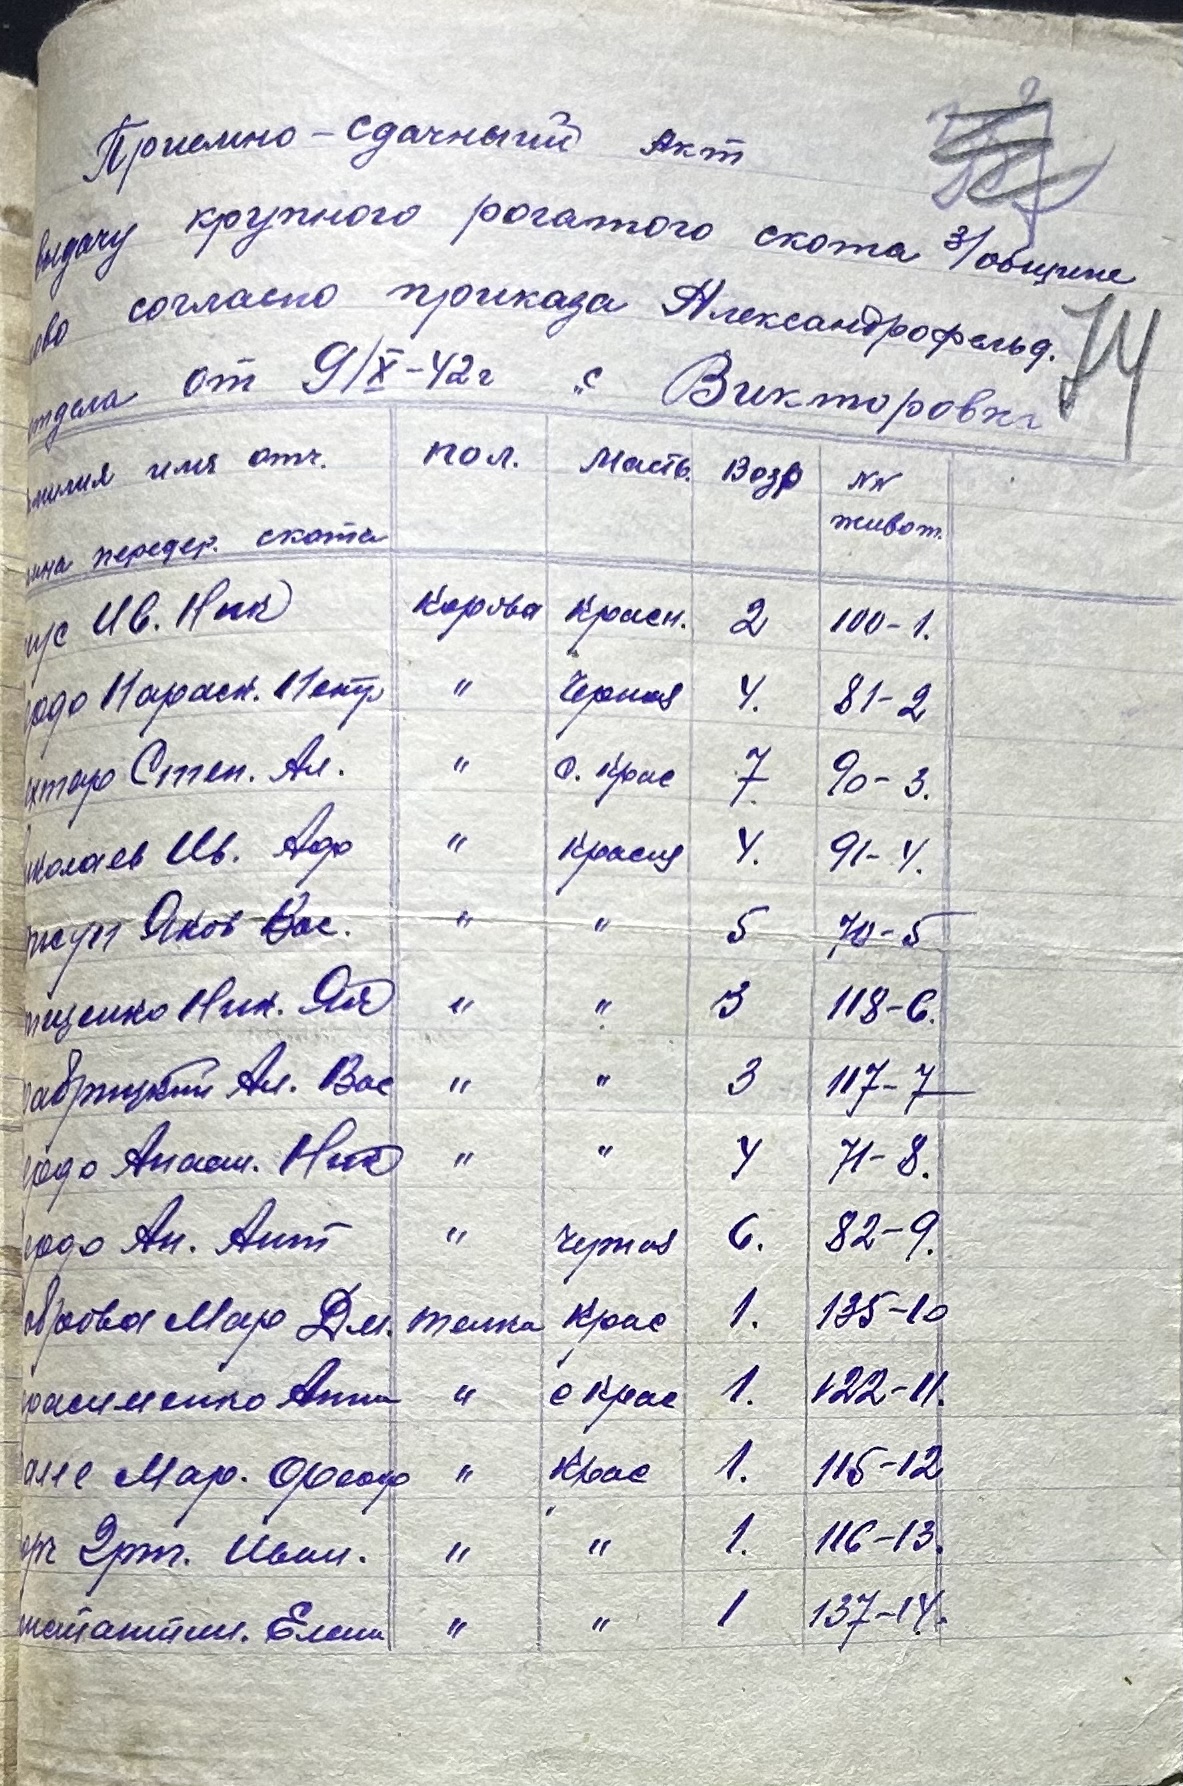 Приемно-сдачный акт
выдачу крупного рогатого скота з/общине
согласно приказа Александрофельд.
74
отдела от 9/X-42г с Викторовки
милия имя отч. пол. Масть. Возр NN живот.
передер. скота
Ив. Ник Корова Красн. 2 100-1.
Параск. Петр " Черная 4. 81-2
Степ. Ал. " с. крас 7 90-3.
иколаев Ив. " Красня 4. 91-4.
Яков Вас. " " 5 70-5
ищенко Ник. " " 3 118-6.
Ал. Вас " " 3 117-7
Анаст. Ник " " 4 71-8.
Ан. Ант " черная 6. 82-9.
Мар Дм. телка Крас 1. 135-10
расименко Анна " с Крас 1. 122-11.
Мар. " Крас 1. 115-12
" " 1. 116-13.
Елена " " 1 137-14.